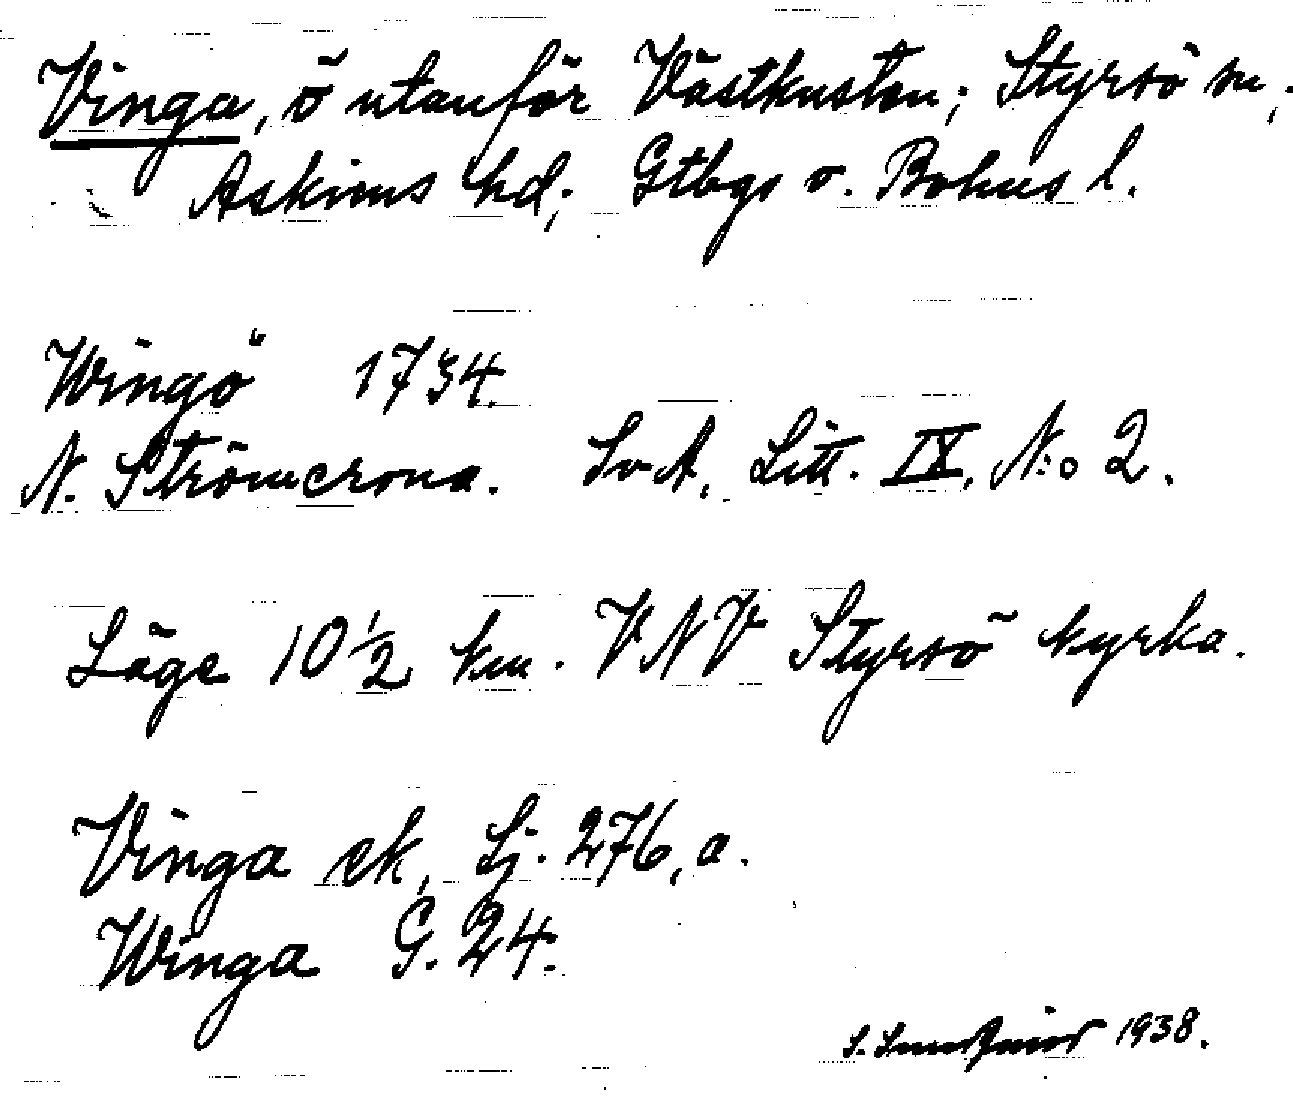 Vinga, ö utanför Västkusten; Styrsö sn;
Askims hd; Gtbgs o. Bohus l.
Wingö 1734.
N. Strömcrona. SvA, Litt. IX, N:o 2.
Läge 10 1/2 km. VNV Styrsö kyrka.
Vinga ek, Sj. 276, a.
Winga G. 24.
S. 1938.